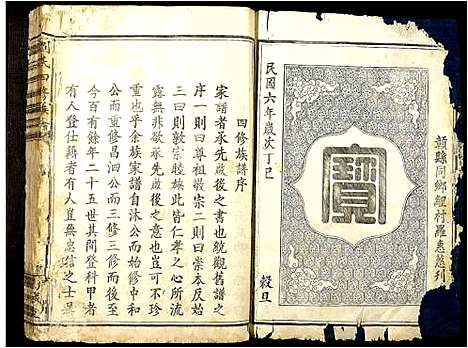 贛縣同鄉鯉村羅惠慈刊
寶
民國六年歲次丁巳
穀旦
四修族譜序
家譜者承先啟後之書也統觀舊譜之
序一則曰尊祖敬宗二則曰崇本反始
三曰則敦宗睦族此皆仁孝之心所流
露無非欲承先啟後之意也豈可不珍
重也乎余族家譜自沐公而始修中和
公而重修昌泗公而三修三修而後至
今百有餘年二十五世其間登科甲者
有人登仕籍者有人豈無忠信之士
四修族譜